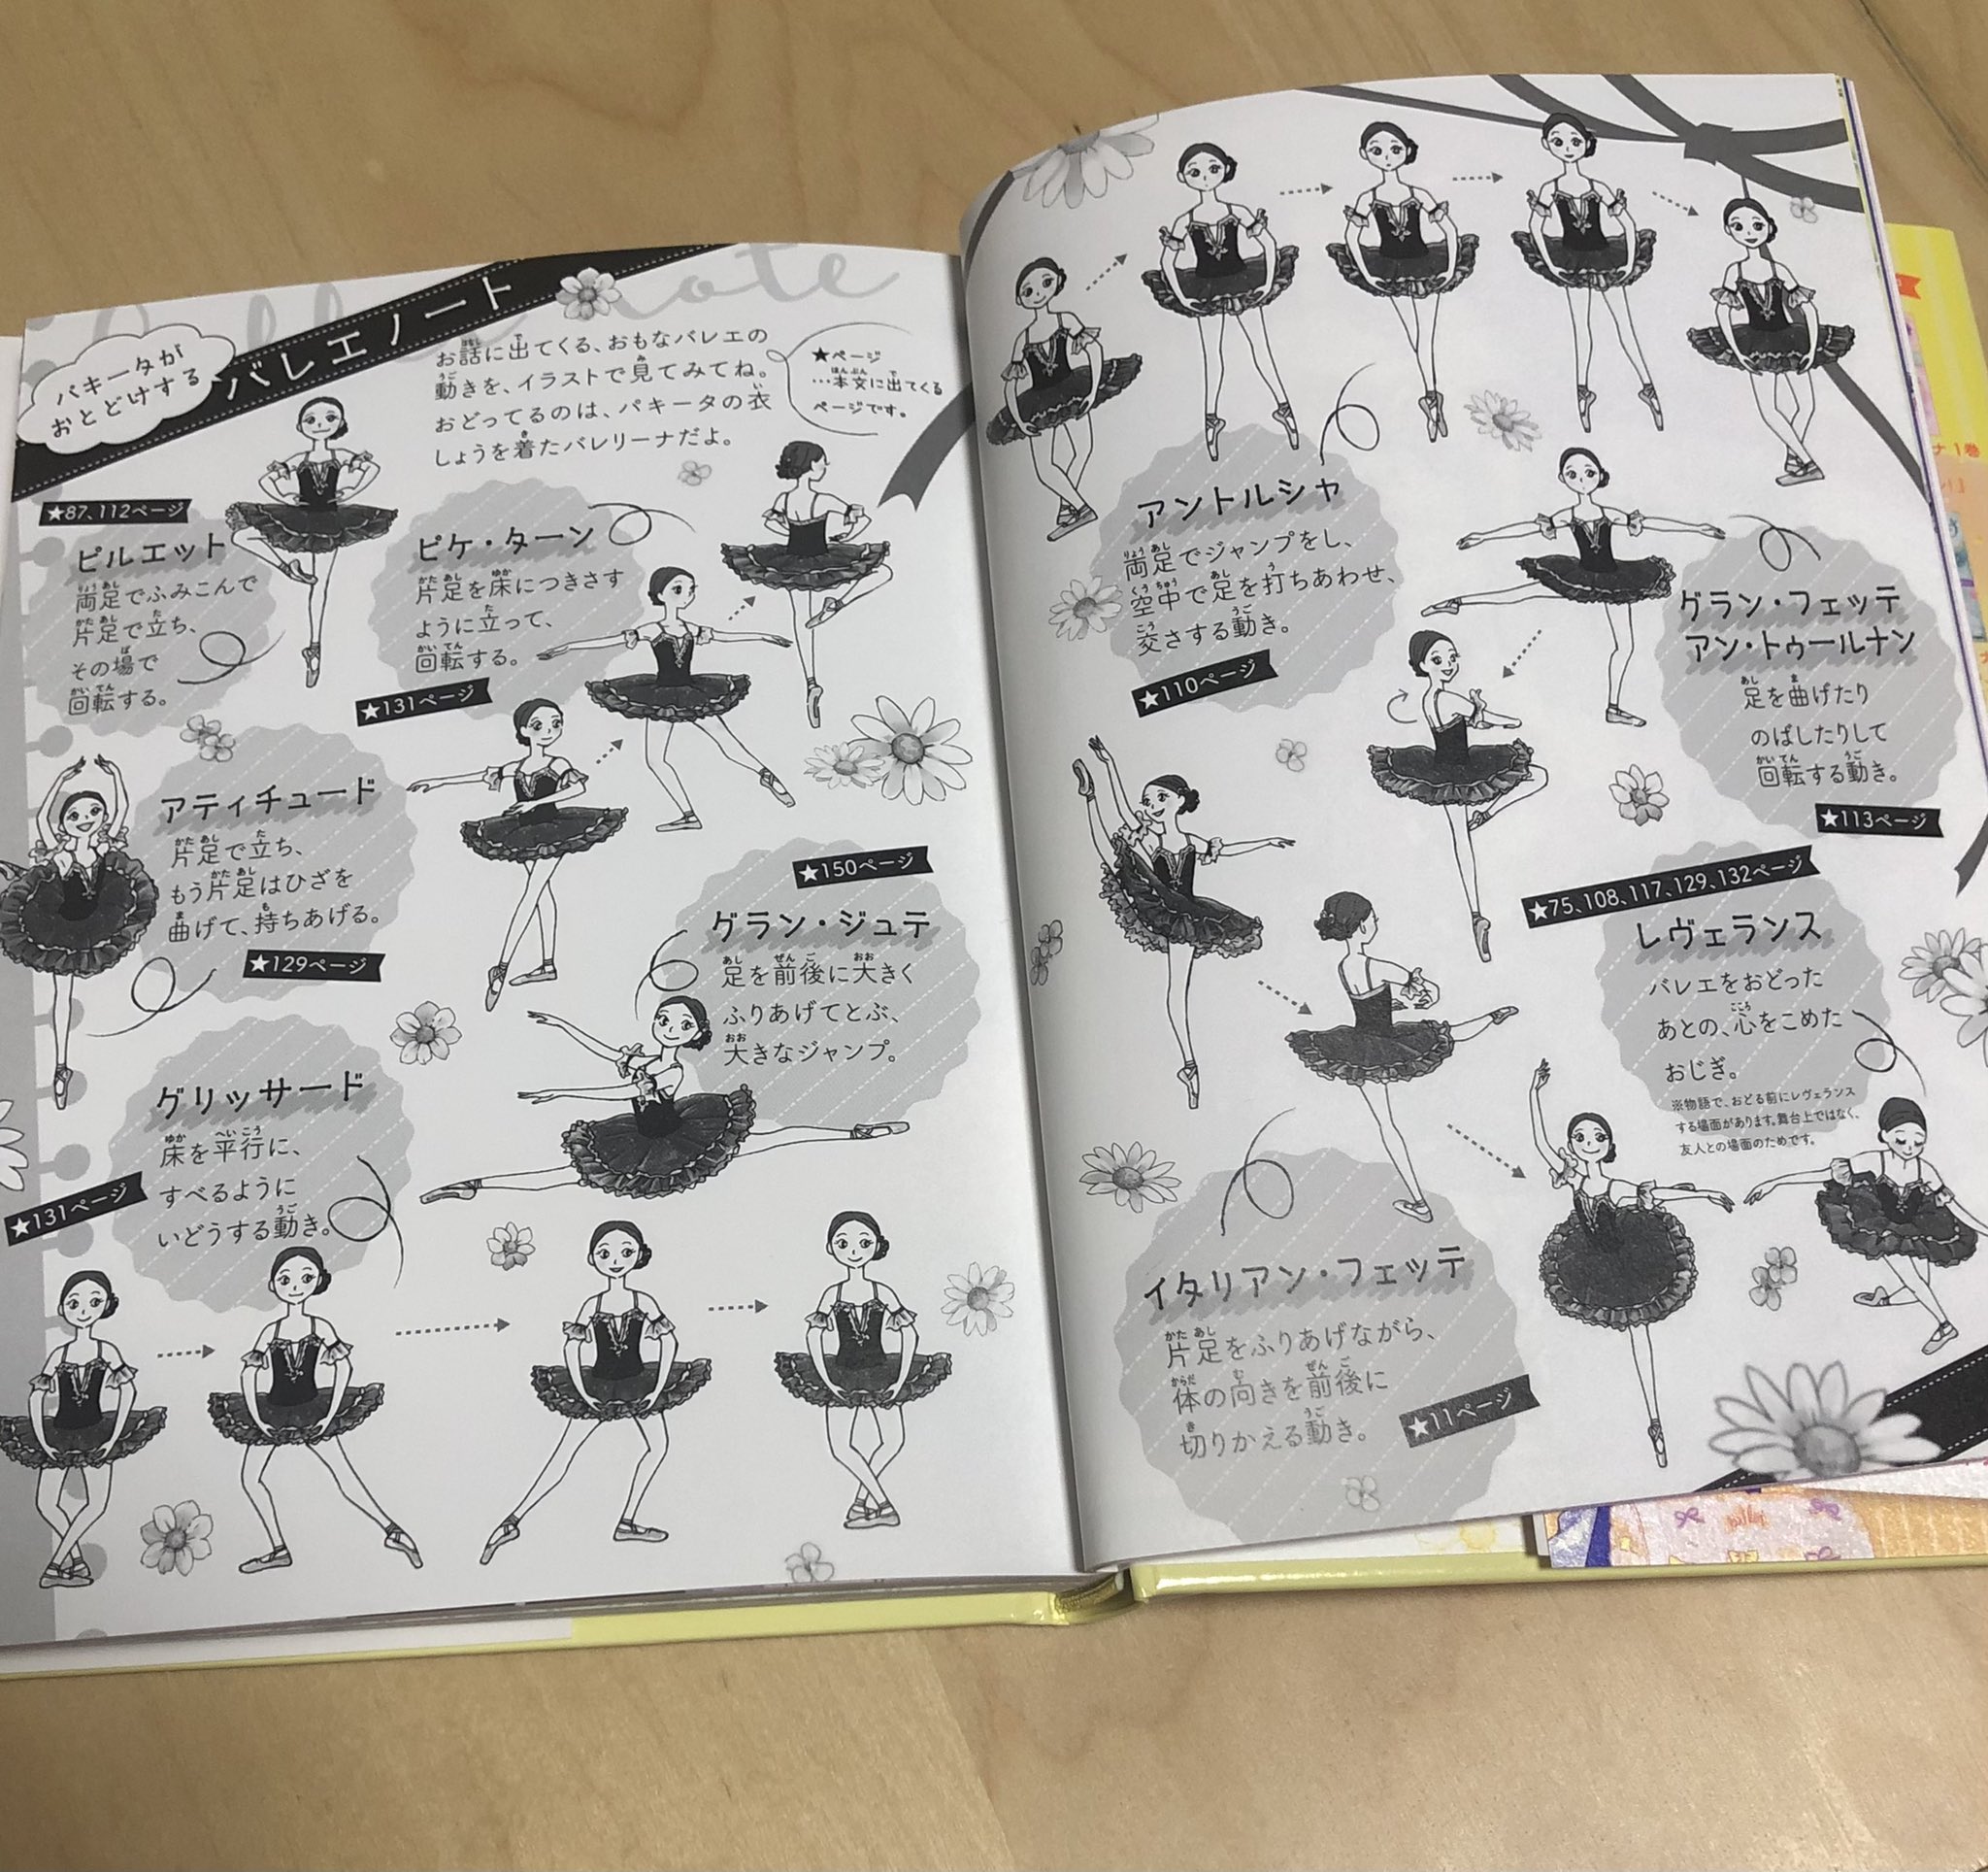 パキータが
おとどけする
バレエノート
お話に出てくる、おもなバレエの
動きを、イラストで見てみてね。
おどってるのは、パキータの衣
しょうを着たバレリーナだよ。
★ページ
…本文に出てくる
ページです。
★87、112ページ
ピルエット
両足でふみこんで
片足で立ち、
その場で
回転する。
ピケ・ターン
片足を床につきさす
ように立って、
回転する。
★131ページ
アティチュード
片足で立ち、
もう片足はひざを
曲げて、持ちあげる。
★129ページ
★150ページ
グラン・ジュテ
足を前後に大きく
ふりあげてとぶ、
大きなジャンプ。
グリッサード
床を平行に、
すべるように
いどうする動き。
★131ページ
アントルシャ
両足でジャンプをし、
空中で足を打ちあわせ、
交さする動き。
★110ページ
グラン・フェッテ
アン・トゥールナン
足を曲げたり
のばしたりして
回転する動き。
★113ページ
★75、108、117、129、132ページ
レヴェランス
バレエをおどった
あとの、心をこめた
おじぎ。
※物語で、おどる前にレヴェランス
する場面があります。舞台上ではなく、
友人との場面のためです。
イタリアン・フェッテ
片足をふりあげながら、
体の向きを前後に
切りかえる動き。
★11ページ